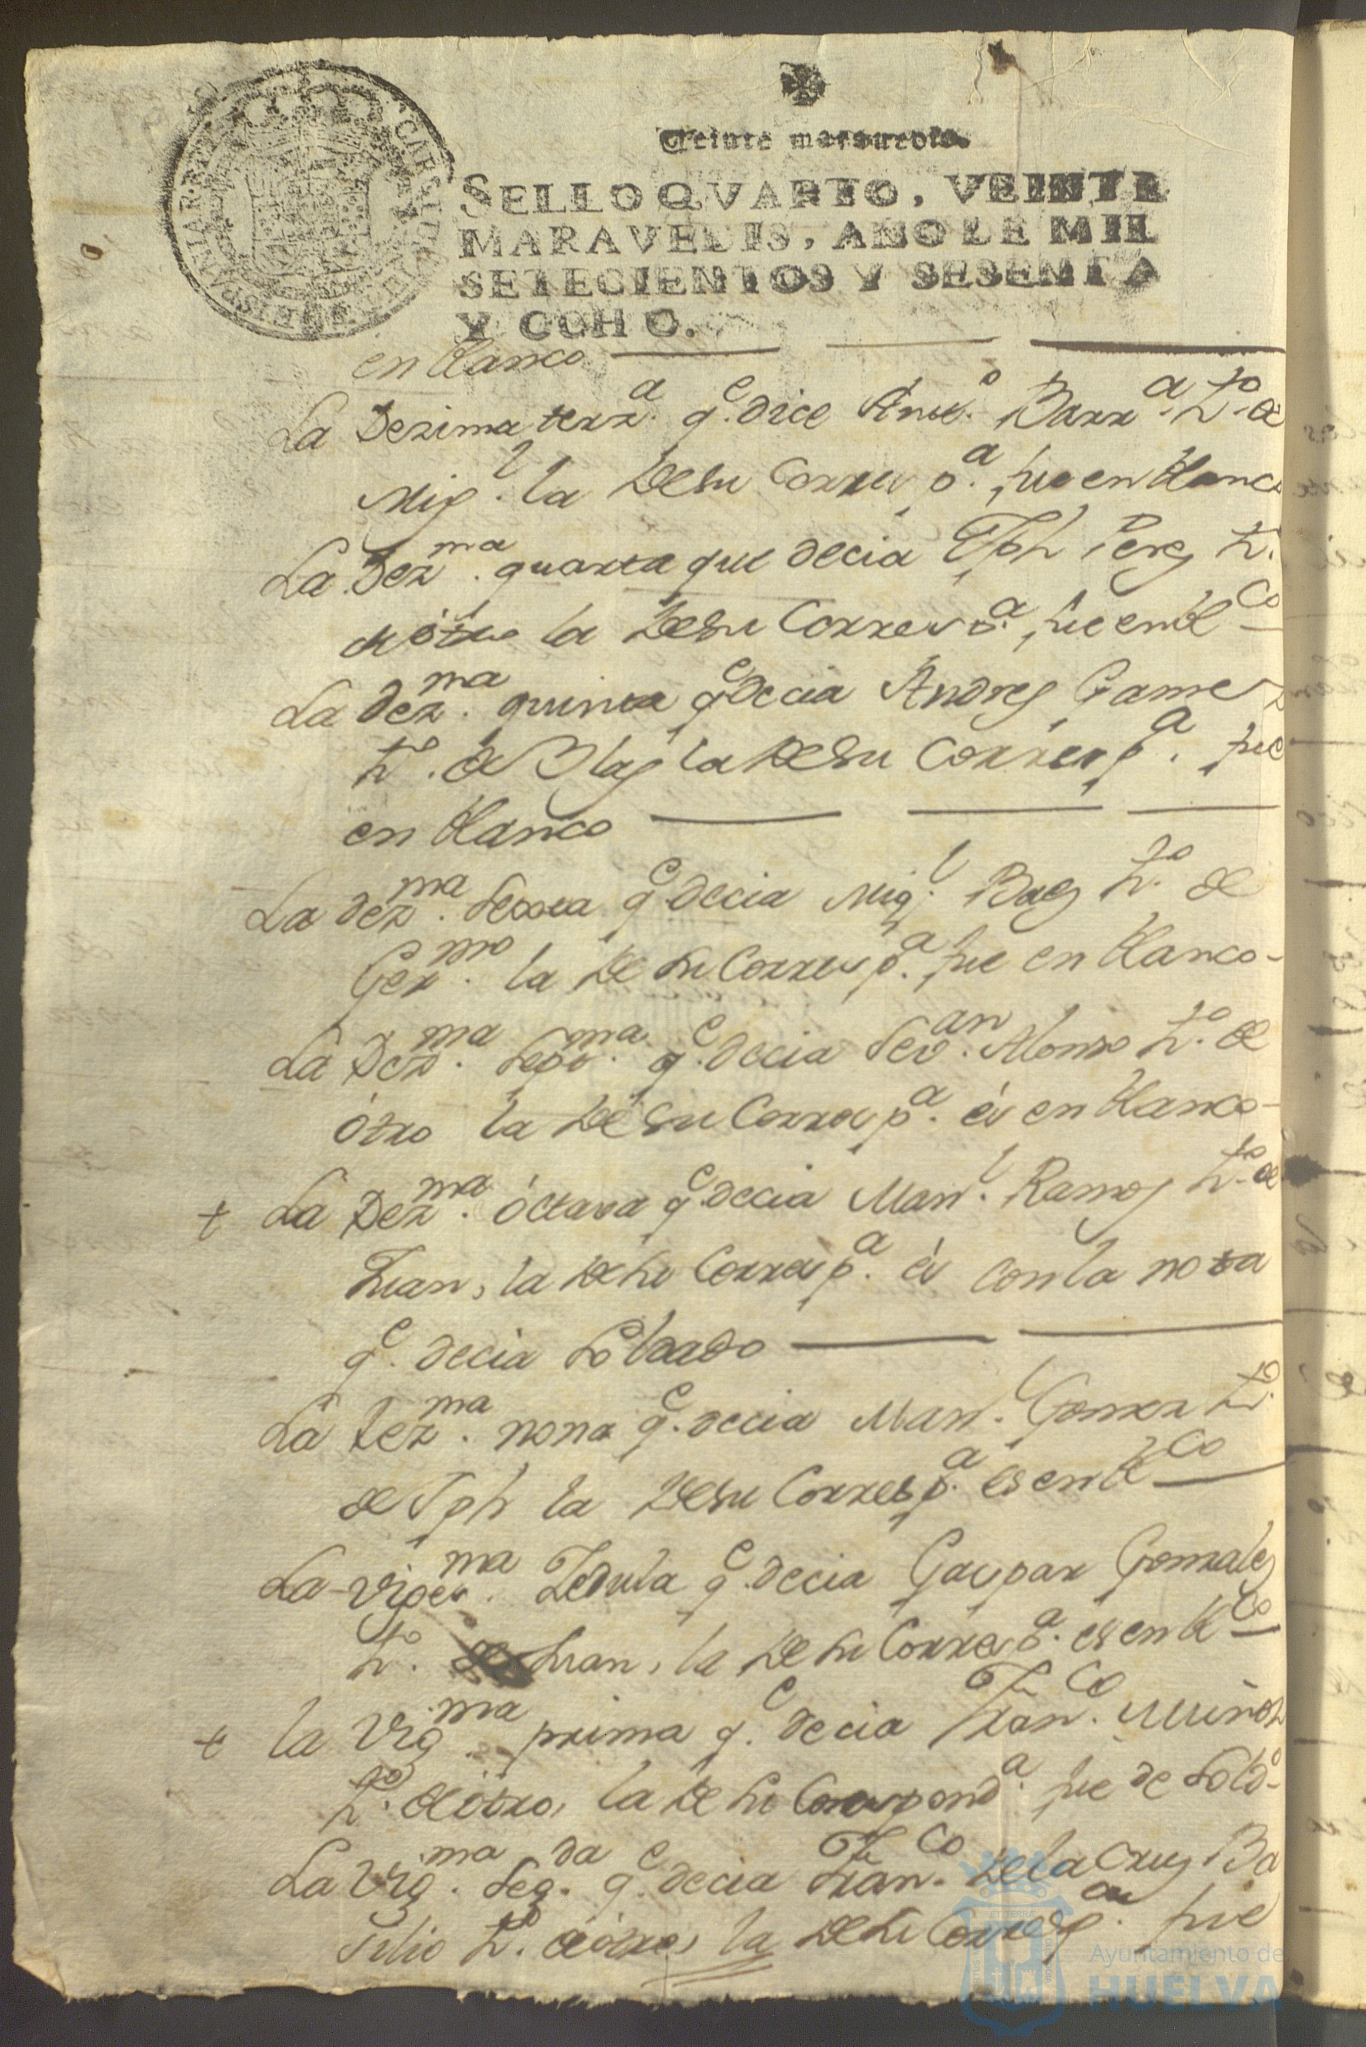 Veinte maravedis.
SELLO QVARTO, VEINTE
MARAVEDIS, AÑO DE MIL
SETECIENTOS Y SESENTA
Y OCHO.
en blanco
La Dezima terz.ª q.e dice Ant.o Barr.ª h.o de
Mig.l la de su Corresp.ª fue en blanco
La Dez.ma quarta que decia Jph Perez h.o
de ótro la de su Corresp.ª fue en bl.co
La dez.ma quinta q.e decia Andres Gamez
h.o de Blas la de su Corresp.ª fue
en blanco
La dez.ma sexta q.e decia Mig.l Baez h.o de
Ger.mo la de su Corresp.ª fue en blanco
La Dez.ma Sept.ma q.e decia Sev.an Alonso h.o de
ótro la de su Corresp.ª és en blanco
+ La Dez.ma óctava q.e decia Man.l Ramos h.o de
Juan, la de su Corresp.ª és con la nota
q.e decia Soldado
La Dez.ma nona q.e decia Man.l Gomez h.o
de Jph la de su Corresp.ª es en bl.co
La Viges.ma Zedula q.e decia Gaspar Gonzalez
h.o de Juan, la de su Corresp.ª es en bl.co
+ la Vig.ma prima q.e decia Fran.co Muñoz
h.o de ótro, la de su Correspond.ª fue de Sold.o
La Vig.ma Seg.da q.e decia Fran.co de la Cruz Ba
silio h.o de ótro, la de su Corresp. fue
Ayuntamiento de
HUELVA